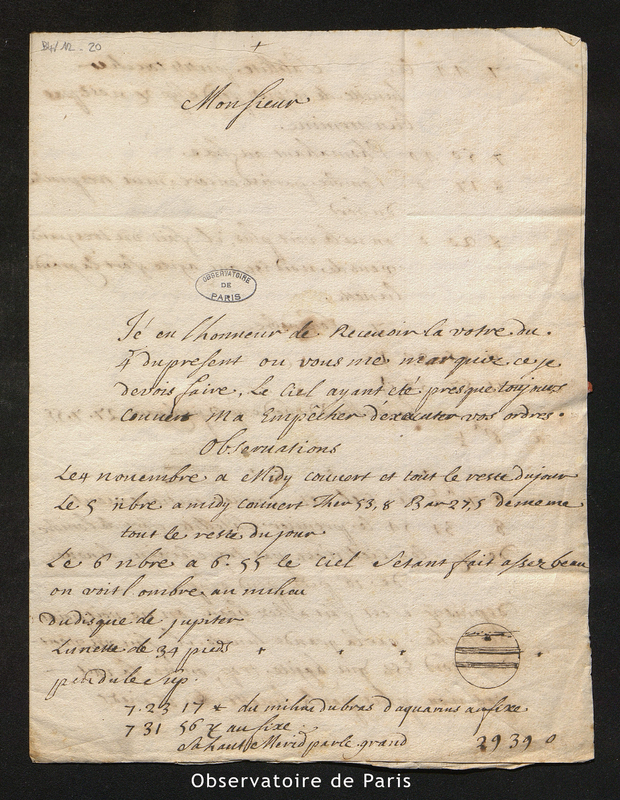 B4/12 - 20
Monsieur
OBSERVATOIRE
DE
PARIS
Jé eu l'honneur de Recevoir la votre du
4 du présent ou vous me marquiez ce je
devois faire, Le Ciel ayant eté presque toujours
couvert Ma Empêcher dexecuter vos ordres.
Observations
Le 4 novembre a Midy couvert et tout le reste du jour
Le 5 nbre a midy couvert Ther 53,8 Bar 27,5 de meme
tout le reste du jour
Le 6 nbre a 6.55 le Ciel Setant fait assez beau
on voit lombre au milieu
du disque de jupiter
Lunette de 34 pieds
pendule Sup.
7 23 17 * du milieu du bras daquarius au fixe
7 31 56 ♃ au fixe
Sa haut Merid par le grand 29 39 0
Observatoire de Paris